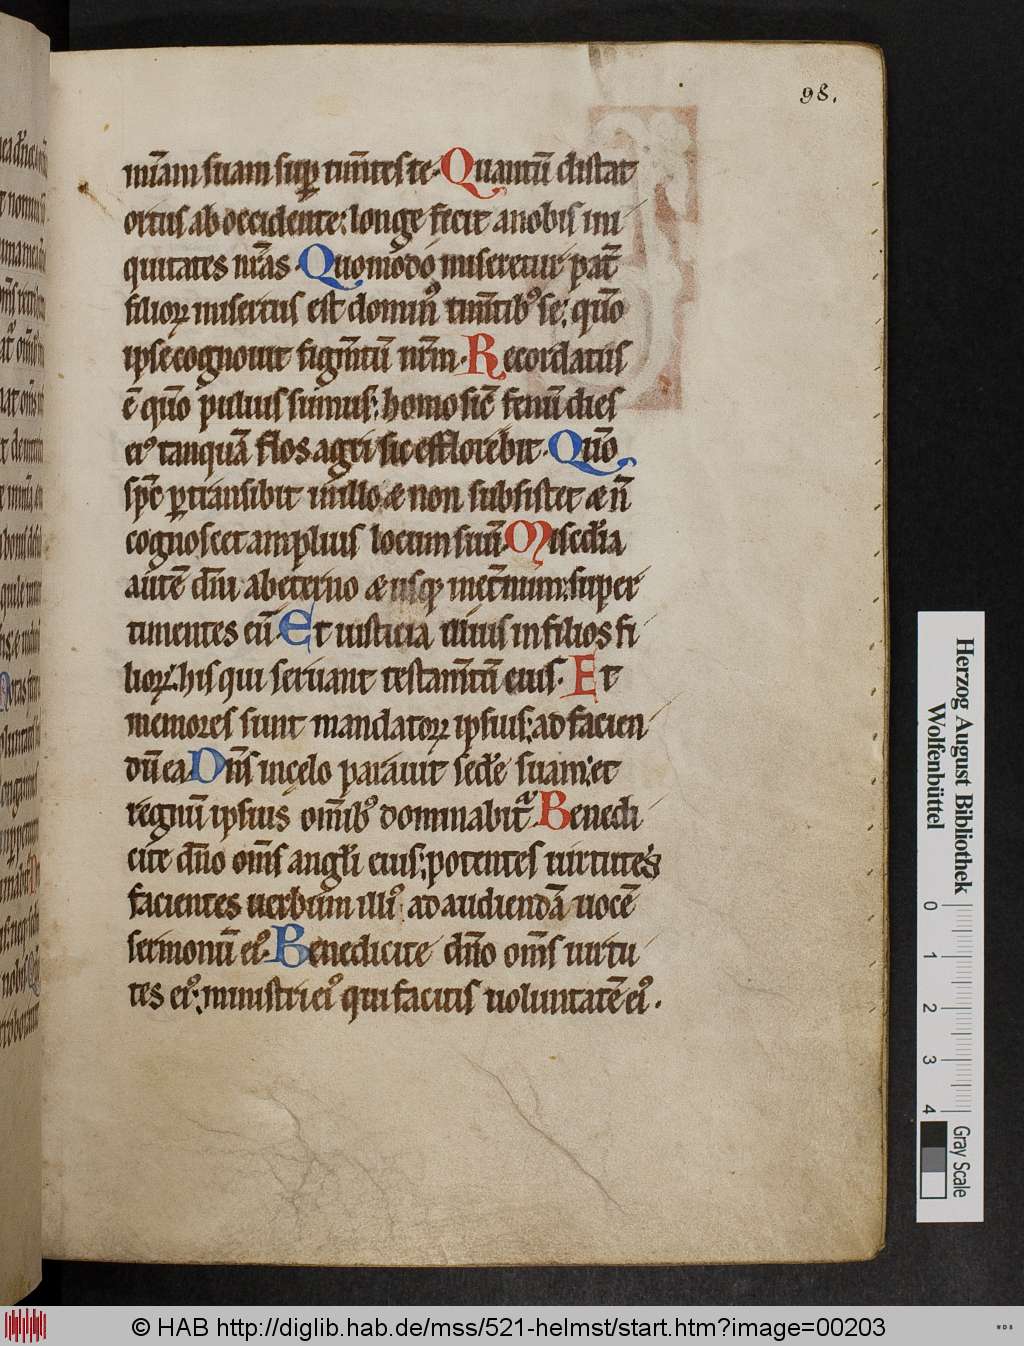 98.
mīam suam sup̱ tim̄tes te. Quantū distat
ortus ab occidente: longe fecit a nobis ini
quitates nr̄as. Quomodo miseretur pat̄
filioꝝ misertus est dominꝰ tim̄tibꝰ se: qūo
ipse cognouit figm̄tū nr̄m. Recordatus
ē qūo puluis sumus: homo sic̄ fenū dies
eiꝰ tanquā flos agri sic efflorebit. Qūo
sp̄c ꝑtransibit in illo æ non subsistet æ n̄
cognoscet amplius locum suū. Misc̄dia
autē dn̄i ab eterno æ usqꝫ in et̄num: super
timentes eū. Et iusticia illius in filios fi
lioꝝ: his qui seruant testam̄tū eius. Et
memores sunt mandatoꝝ ipsius: ad facien
dū ea. Dn̄s in cęlo parauit sedē suam: et
regnū ipsius om̄ibꝰ dominabit̄. Benedi
cite dn̄o om̄s angl̄i eius: potentes uirtutes
facientes uerbum illiꝰ ad audiendā uocē
sermonū eiꝰ. Benedicite dn̄o om̄s uirtu
tes eiꝰ: ministri eiꝰ qui facitis uoluntatē eiꝰ.
Herzog August Bibliothek
Wolfenbüttel
0 1 2 3 4
Gray Scale
© HAB http://diglib.hab.de/mss/521-helmst/start.htm?image=00203